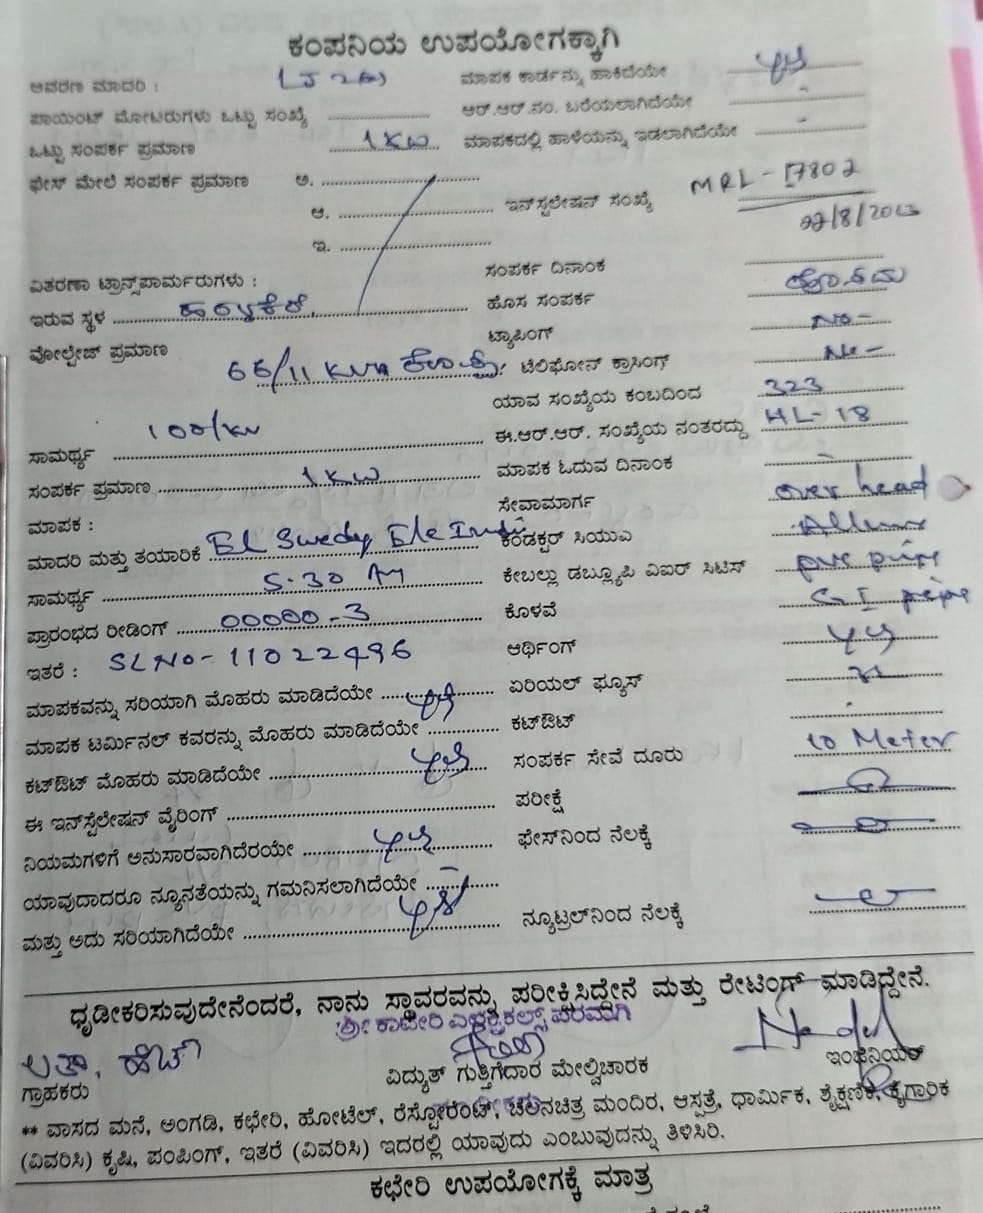 ಕಂಪನಿಯ ಉಪಯೋಗಕ್ಕಾಗಿ
ಆವರಣ ಮಾದರಿ : ಮಾಪಕ ಕಾರ್ಡನ್ನು ಹಾಕಿದೆಯೇ
ಪಾಯಿಂಟ್ ಮೋಟರುಗಳು ಒಟ್ಟು ಸಂಖ್ಯೆ ಆರ್.ಆರ್.ನಂ. ಬರೆಯಲಾಗಿದೆಯೇ
ಒಟ್ಟು ಸಂಪರ್ಕ ಪ್ರಮಾಣ 1 KW ಮಾಪಕದಲ್ಲಿ ಹಾಳೆಯನ್ನು ಇಡಲಾಗಿದೆಯೇ
ಫೇಸ್ ಮೇಲೆ ಸಂಪರ್ಕ ಪ್ರಮಾಣ ಅ.
ಆ. ಇನ್‌ಸ್ಟಲೇಷನ್ ಸಂಖ್ಯೆ MRL - 17802
ಇ.
ವಿತರಣಾ ಟ್ರಾನ್ಸ್‌ಫಾರ್ಮರುಗಳು : ಸಂಪರ್ಕ ದಿನಾಂಕ
ಇರುವ ಸ್ಥಳ ಹೊಸ ಸಂಪರ್ಕ
ವೋಲ್ಟೇಜ್ ಪ್ರಮಾಣ ಟ್ಯಾಪಿಂಗ್ No -
66/11 KVA ಟೆಲಿಫೋನ್ ಕ್ರಾಸಿಂಗ್ No -
ಯಾವ ಸಂಖ್ಯೆಯ ಕಂಬದಿಂದ 323
ಸಾಮರ್ಥ್ಯ 100/KV ಈ.ಆರ್.ಆರ್. ಸಂಖ್ಯೆಯ ನಂತರದ್ದು HL - 18
ಸಂಪರ್ಕ ಪ್ರಮಾಣ 1 KW ಮಾಪಕ ಓದುವ ದಿನಾಂಕ
ಮಾಪಕ : ಸೇವಾಮಾರ್ಗ over head
ಮಾದರಿ ಮತ್ತು ತಯಾರಿಕೆ El Swedy Ele ಕಂಡಕ್ಟರ್ ಸಿಯುಎ
ಸಾಮರ್ಥ್ಯ 5-30 Am ಕೇಬಲ್ಲು ಡಬ್ಲ್ಯೂಪಿ ವಿಐರ್ ಸಿಟಿಸ್ pvc pipe
ಪ್ರಾರಂಭದ ರೀಡಿಂಗ್ 00000-3 ಕೊಳವೆ G I pipe
ಇತರೆ : SL NO - 11022496 ಆರ್ಥಿಂಗ್
ಮಾಪಕವನ್ನು ಸರಿಯಾಗಿ ಮೊಹರು ಮಾಡಿದೆಯೇ ಏರಿಯಲ್ ಫ್ಯೂಸ್
ಮಾಪಕ ಟರ್ಮಿನಲ್ ಕವರನ್ನು ಮೊಹರು ಮಾಡಿದೆಯೇ ಕಟ್‌ಔಟ್
ಕಟ್‌ಔಟ್ ಮೊಹರು ಮಾಡಿದೆಯೇ ಸಂಪರ್ಕ ಸೇವೆ ದೂರು 10 Meter
ಈ ಇನ್‌ಸ್ಟೆಲೇಷನ್ ವೈರಿಂಗ್ ಪರೀಕ್ಷೆ
ನಿಯಮಗಳಿಗೆ ಅನುಸಾರವಾಗಿದೆರಯೇ ಫೇಸ್‌ನಿಂದ ನೆಲಕ್ಕೆ
ಯಾವುದಾದರೂ ನ್ಯೂನತೆಯನ್ನು ಗಮನಿಸಲಾಗಿದೆಯೇ
ಮತ್ತು ಅದು ಸರಿಯಾಗಿದೆಯೇ ನ್ಯೂಟ್ರಲ್‌ನಿಂದ ನೆಲಕ್ಕೆ
ಧೃಡೀಕರಿಸುವುದೇನೆಂದರೆ, ನಾನು ಸ್ಥಾವರವನ್ನು ಪರೀಕ್ಷಿಸಿದ್ದೇನೆ ಮತ್ತು ರೇಟಿಂಗ್ ಮಾಡಿದ್ದೇನೆ.
ಶ್ರೀ ಕಾವೇರಿ ಎಲೆಕ್ಟ್ರಿಕಲ್ಸ್ ಪರವಾಗಿ
ಗ್ರಾಹಕರು ವಿದ್ಯುತ್ ಗುತ್ತಿಗೆದಾರ ಮೇಲ್ವಿಚಾರಕ ಇಂಜಿನಿಯರ್
** ವಾಸದ ಮನೆ, ಅಂಗಡಿ, ಕಛೇರಿ, ಹೋಟೆಲ್, ರೆಸ್ಟೋರೆಂಟ್, ಚಲನಚಿತ್ರ ಮಂದಿರ, ಆಸ್ಪತ್ರೆ, ಧಾರ್ಮಿಕ, ಶೈಕ್ಷಣಿಕ, ಕೈಗಾರಿಕ
(ವಿವರಿಸಿ) ಕೃಷಿ, ಪಂಪಿಂಗ್, ಇತರೆ (ವಿವರಿಸಿ) ಇದರಲ್ಲಿ ಯಾವುದು ಎಂಬುವುದನ್ನು ತಿಳಿಸಿರಿ.
ಕಛೇರಿ ಉಪಯೋಗಕ್ಕೆ ಮಾತ್ರ